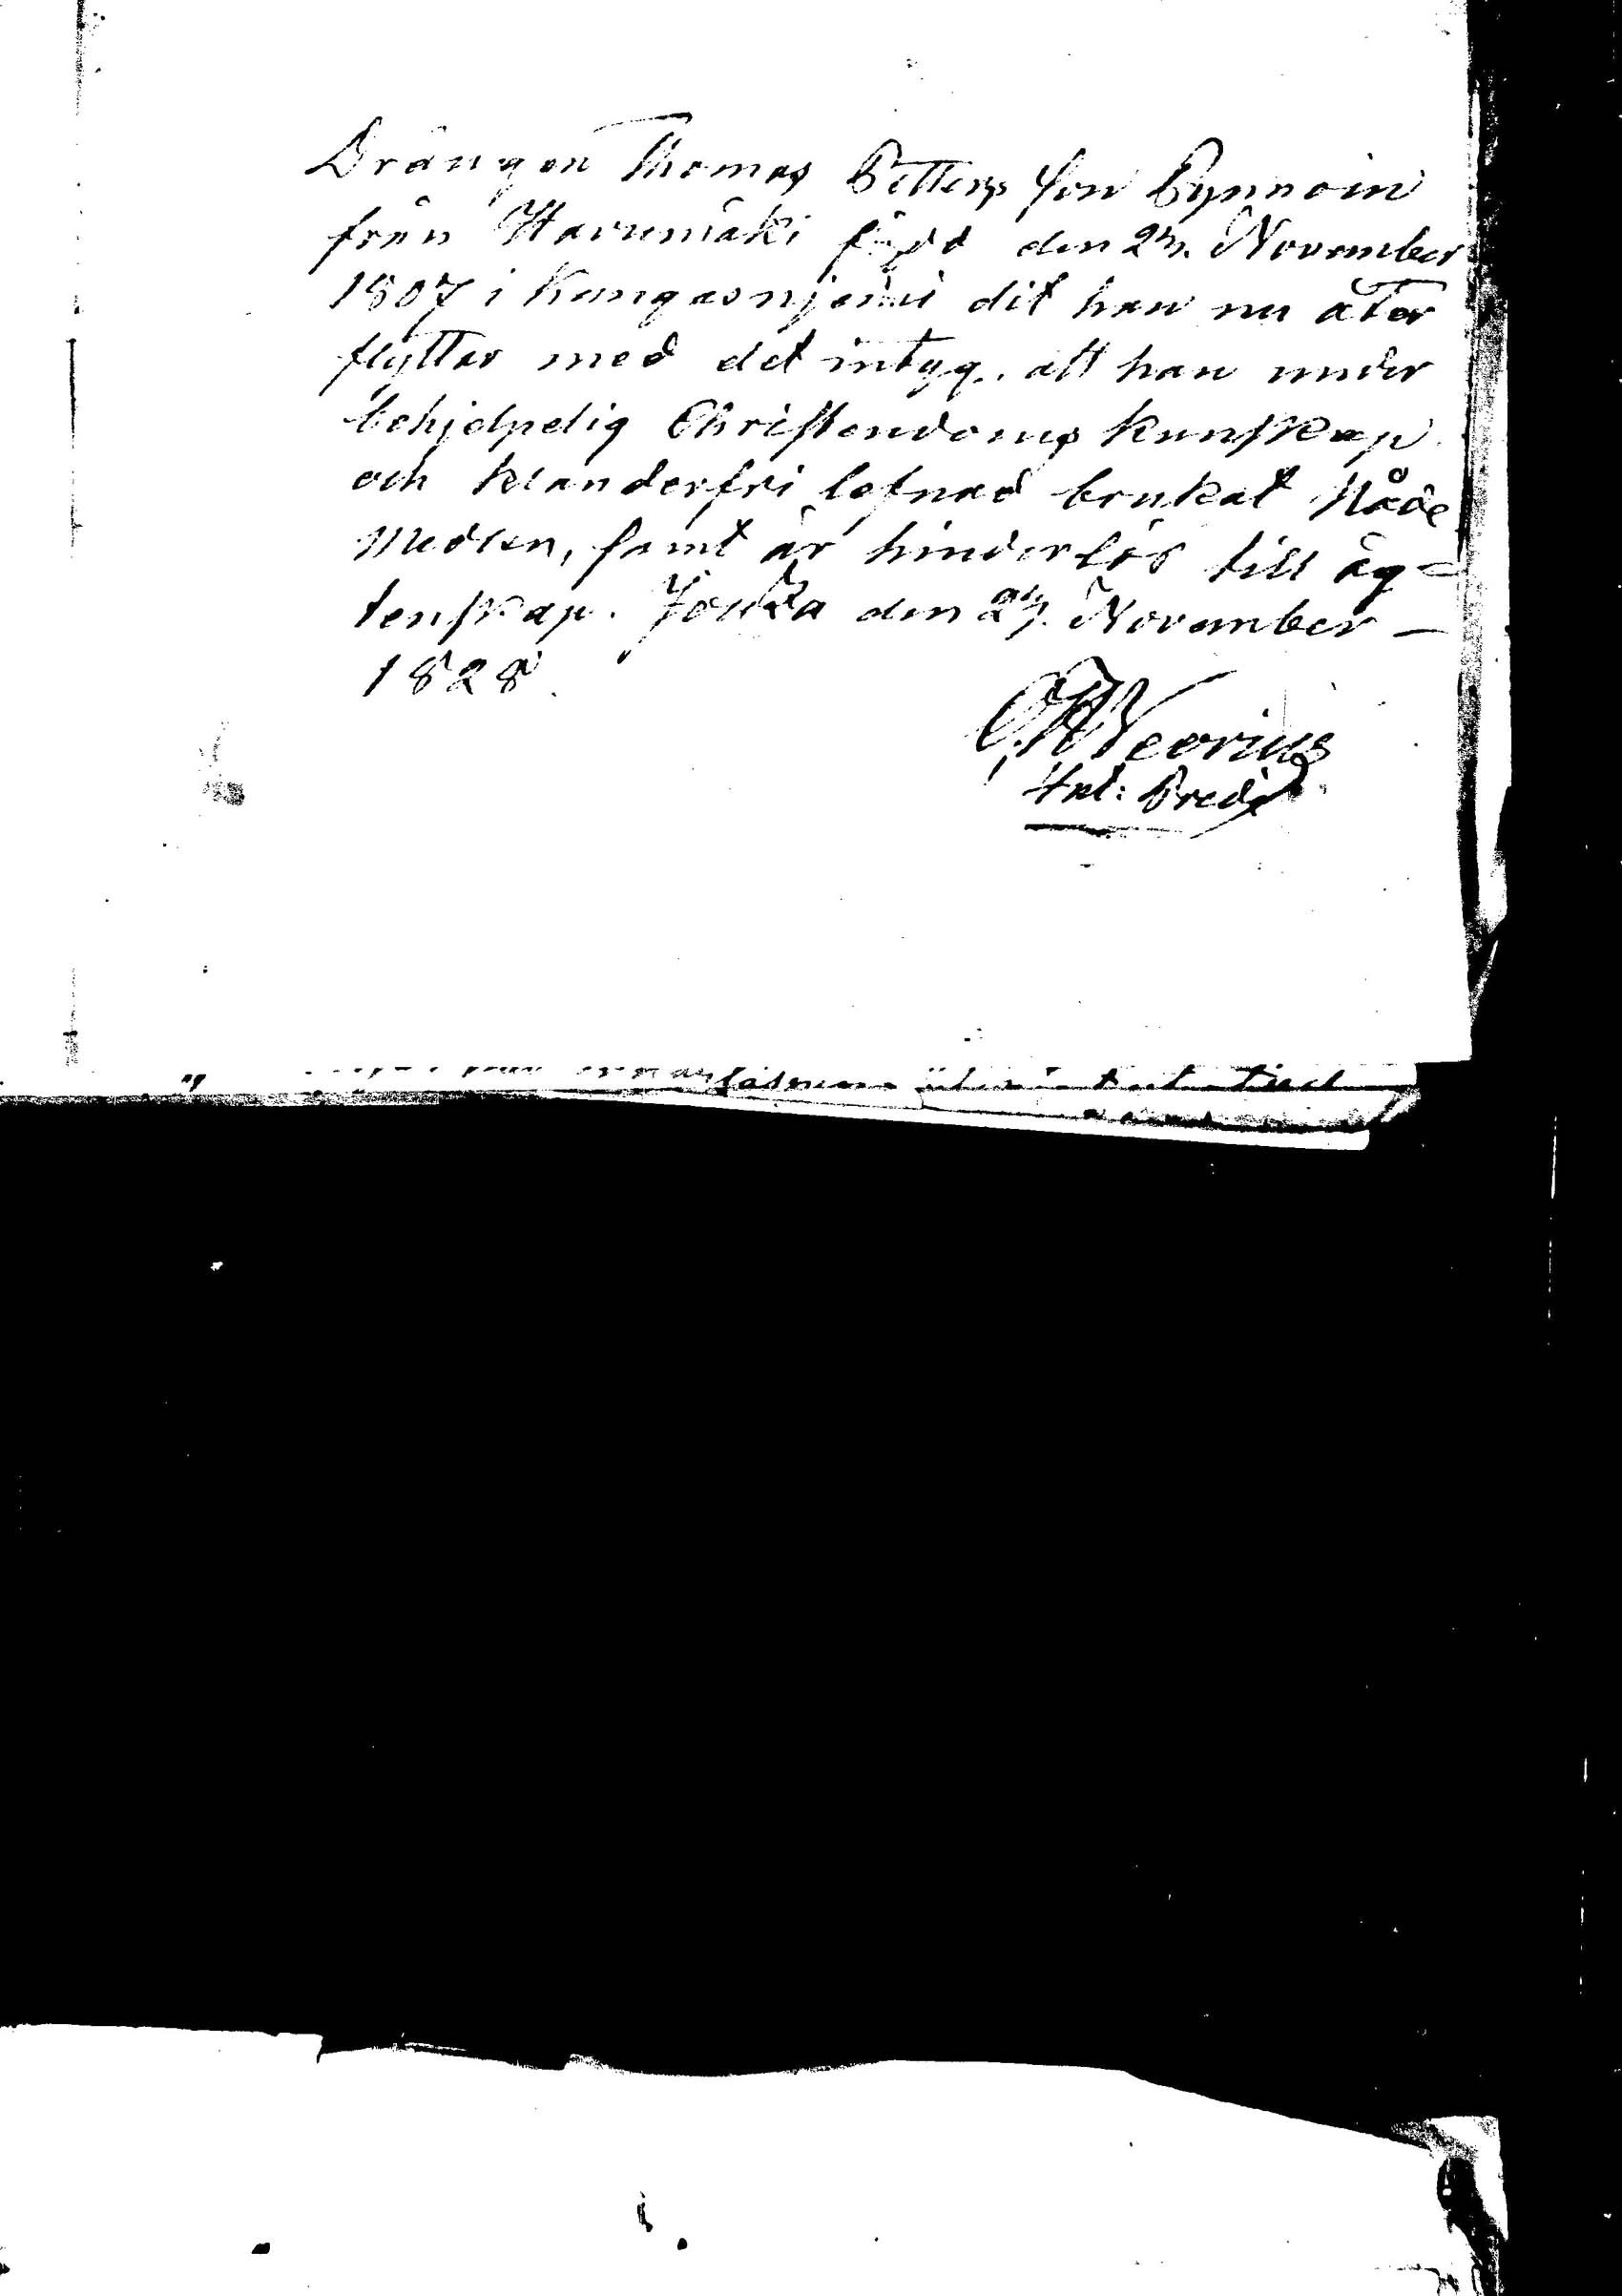 Drängen Thomas Petters Son Pynnöin
från Harumäki född den 27. November
1807 i Kangasnjemi dit han nu åter
flyttar med det intyg, att han under
behjelpelig Christendoms kunskap
och klanderfri lefnad brukat Nåde
Medlen, samt är hinderlös till äg=
tenskap. Jouka den 27. November —
1828.
Neorius
Pred